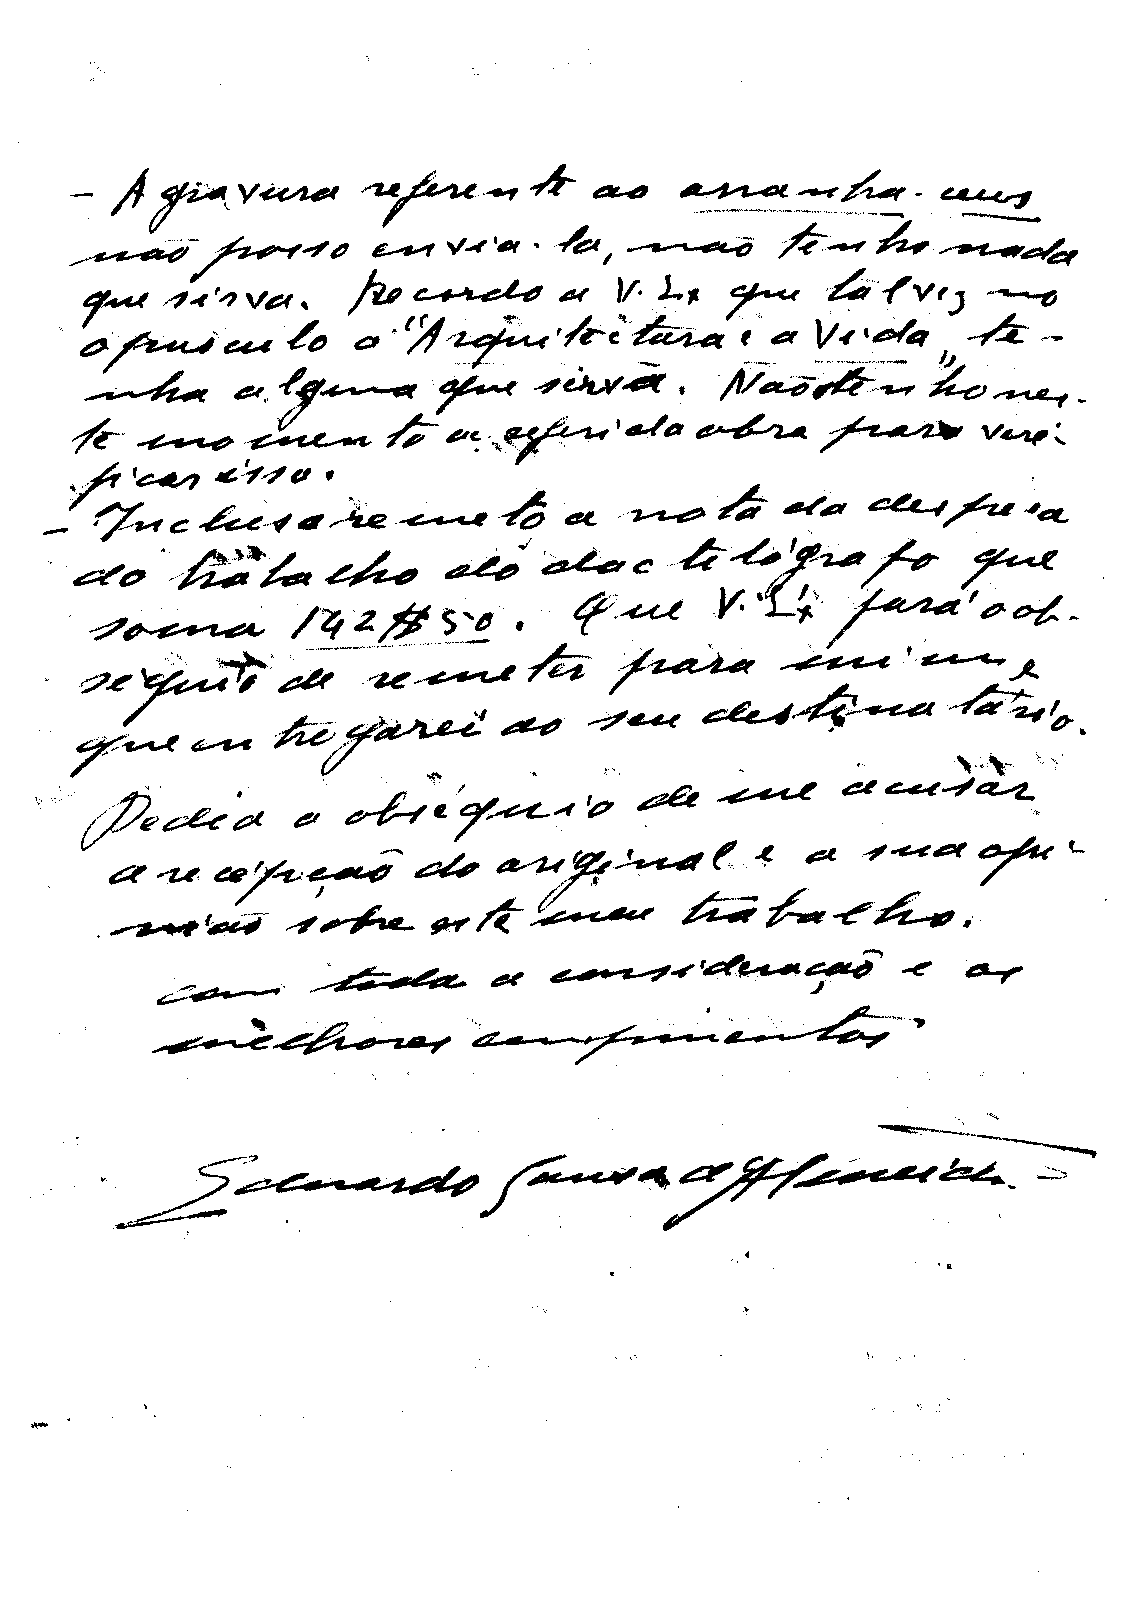 - A gravura referente ao arranha-ceus
não posso envia-la, não tenho nada
que sirva. Recordo a V. Ex que talvez no
opusculo o "Arquitetura e a Vida" te-
nha alguma que sirva. Não tenho nes-
te momento a referida obra para veri-
ficar isso.
- Inclusa remeto a nota da despesa
do trabalho do dactelógrafo que
soma 142$50. Que V. Ex fará o ob-
séquio de remeter para mim e
que entregarei ao seu destinatário.
Pedia o obséquio de me acusar
a recepção do original e a sua opi-
nião sobre este meu trabalho.
com toda a consideração e os
melhores cumprimentos
Eduardo d'Almeida